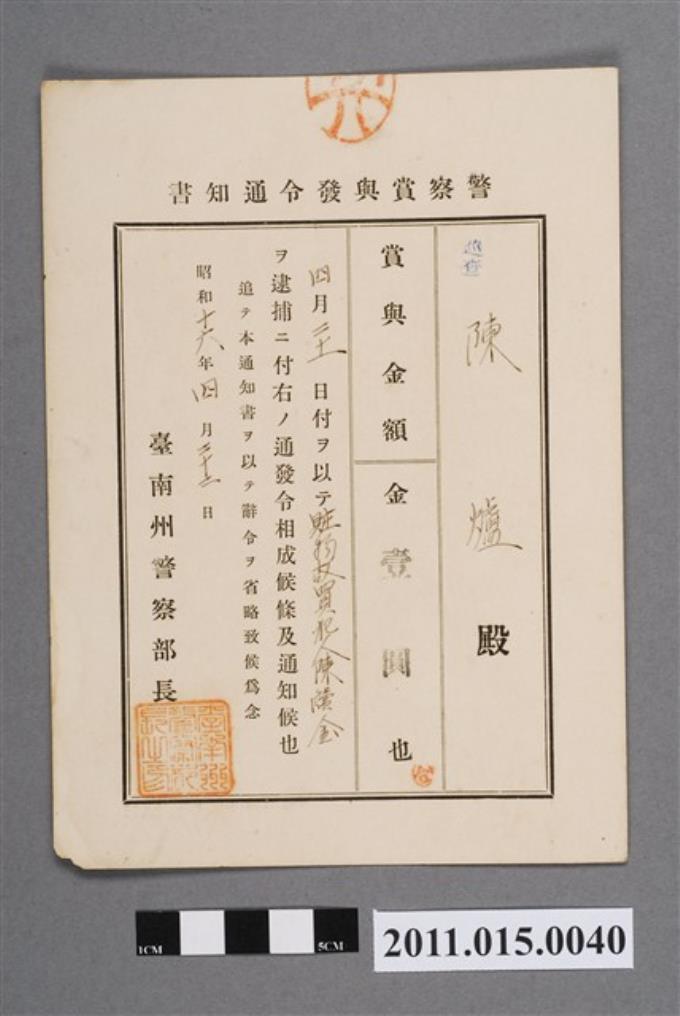 警察賞與發令通知書
陳爐殿
賞與金額
金壹圓也
四月二十一日付ヲ以テ贓物故買犯人陳瀆金
ヲ逮捕ニ付右ノ通發令相成候條及通知候也
追テ本通知書ヲ以テ辭令ヲ省略致候爲念
昭和十六年四月二十二日
臺南州警察部長
1CM
5CM
2011.015.0040